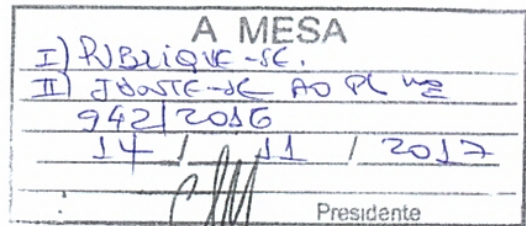 A MESA
I) PUBLIQUE-SE.
II) JUNTE-SE AO PL nº
942/2016
14 / 11 / 2017
Presidente